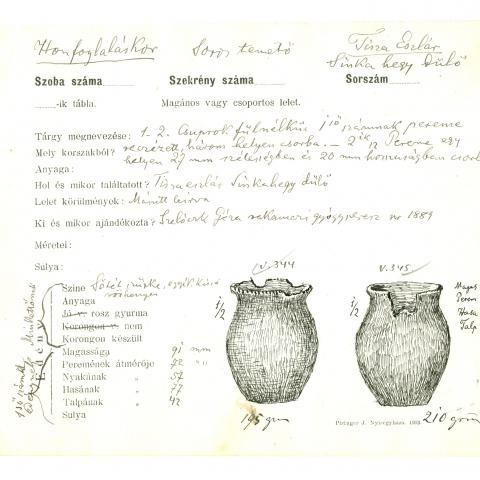 Honfoglaláskor Soros temető Tisza Eszlár
Sinka hegy dülő
Szoba száma Szekrény száma Sorszám
-ik tábla. Magános vagy csoportos lelet.
Tárgy megnevezése: 1-2. Csuprok fülnélkül, 1ső számnak pereme
Mely korszakból? recézett, három helyen csorba. - 2ik sz Pereme egy
helyen 27 mm szélességben és 20 mm hosszuságban csorba
Anyaga:
Hol és mikor találtatott? Tiszaeszlár Sinkahegy dülő
Lelet körülmények:
Ki és mikor ajándékozta? Géza rakamazi gyógyszerész ur 1889
Méretei:
Sulya:
Szine Sötét szürke,
Anyaga
Jó v. rosz gyurma
Korongon v. nem
Korongon készült
Magassága 91 mm
Peremének átmérője 72 "
Nyakának " 57
Hasának " 77
Talpának " 42
Sulya
Edény
V. 344
1/2
195 gm
V. 345
1/2
210 gm
Magas
Perem
Hasa
Talp
Piringer J. Nyiregyháza. 1903